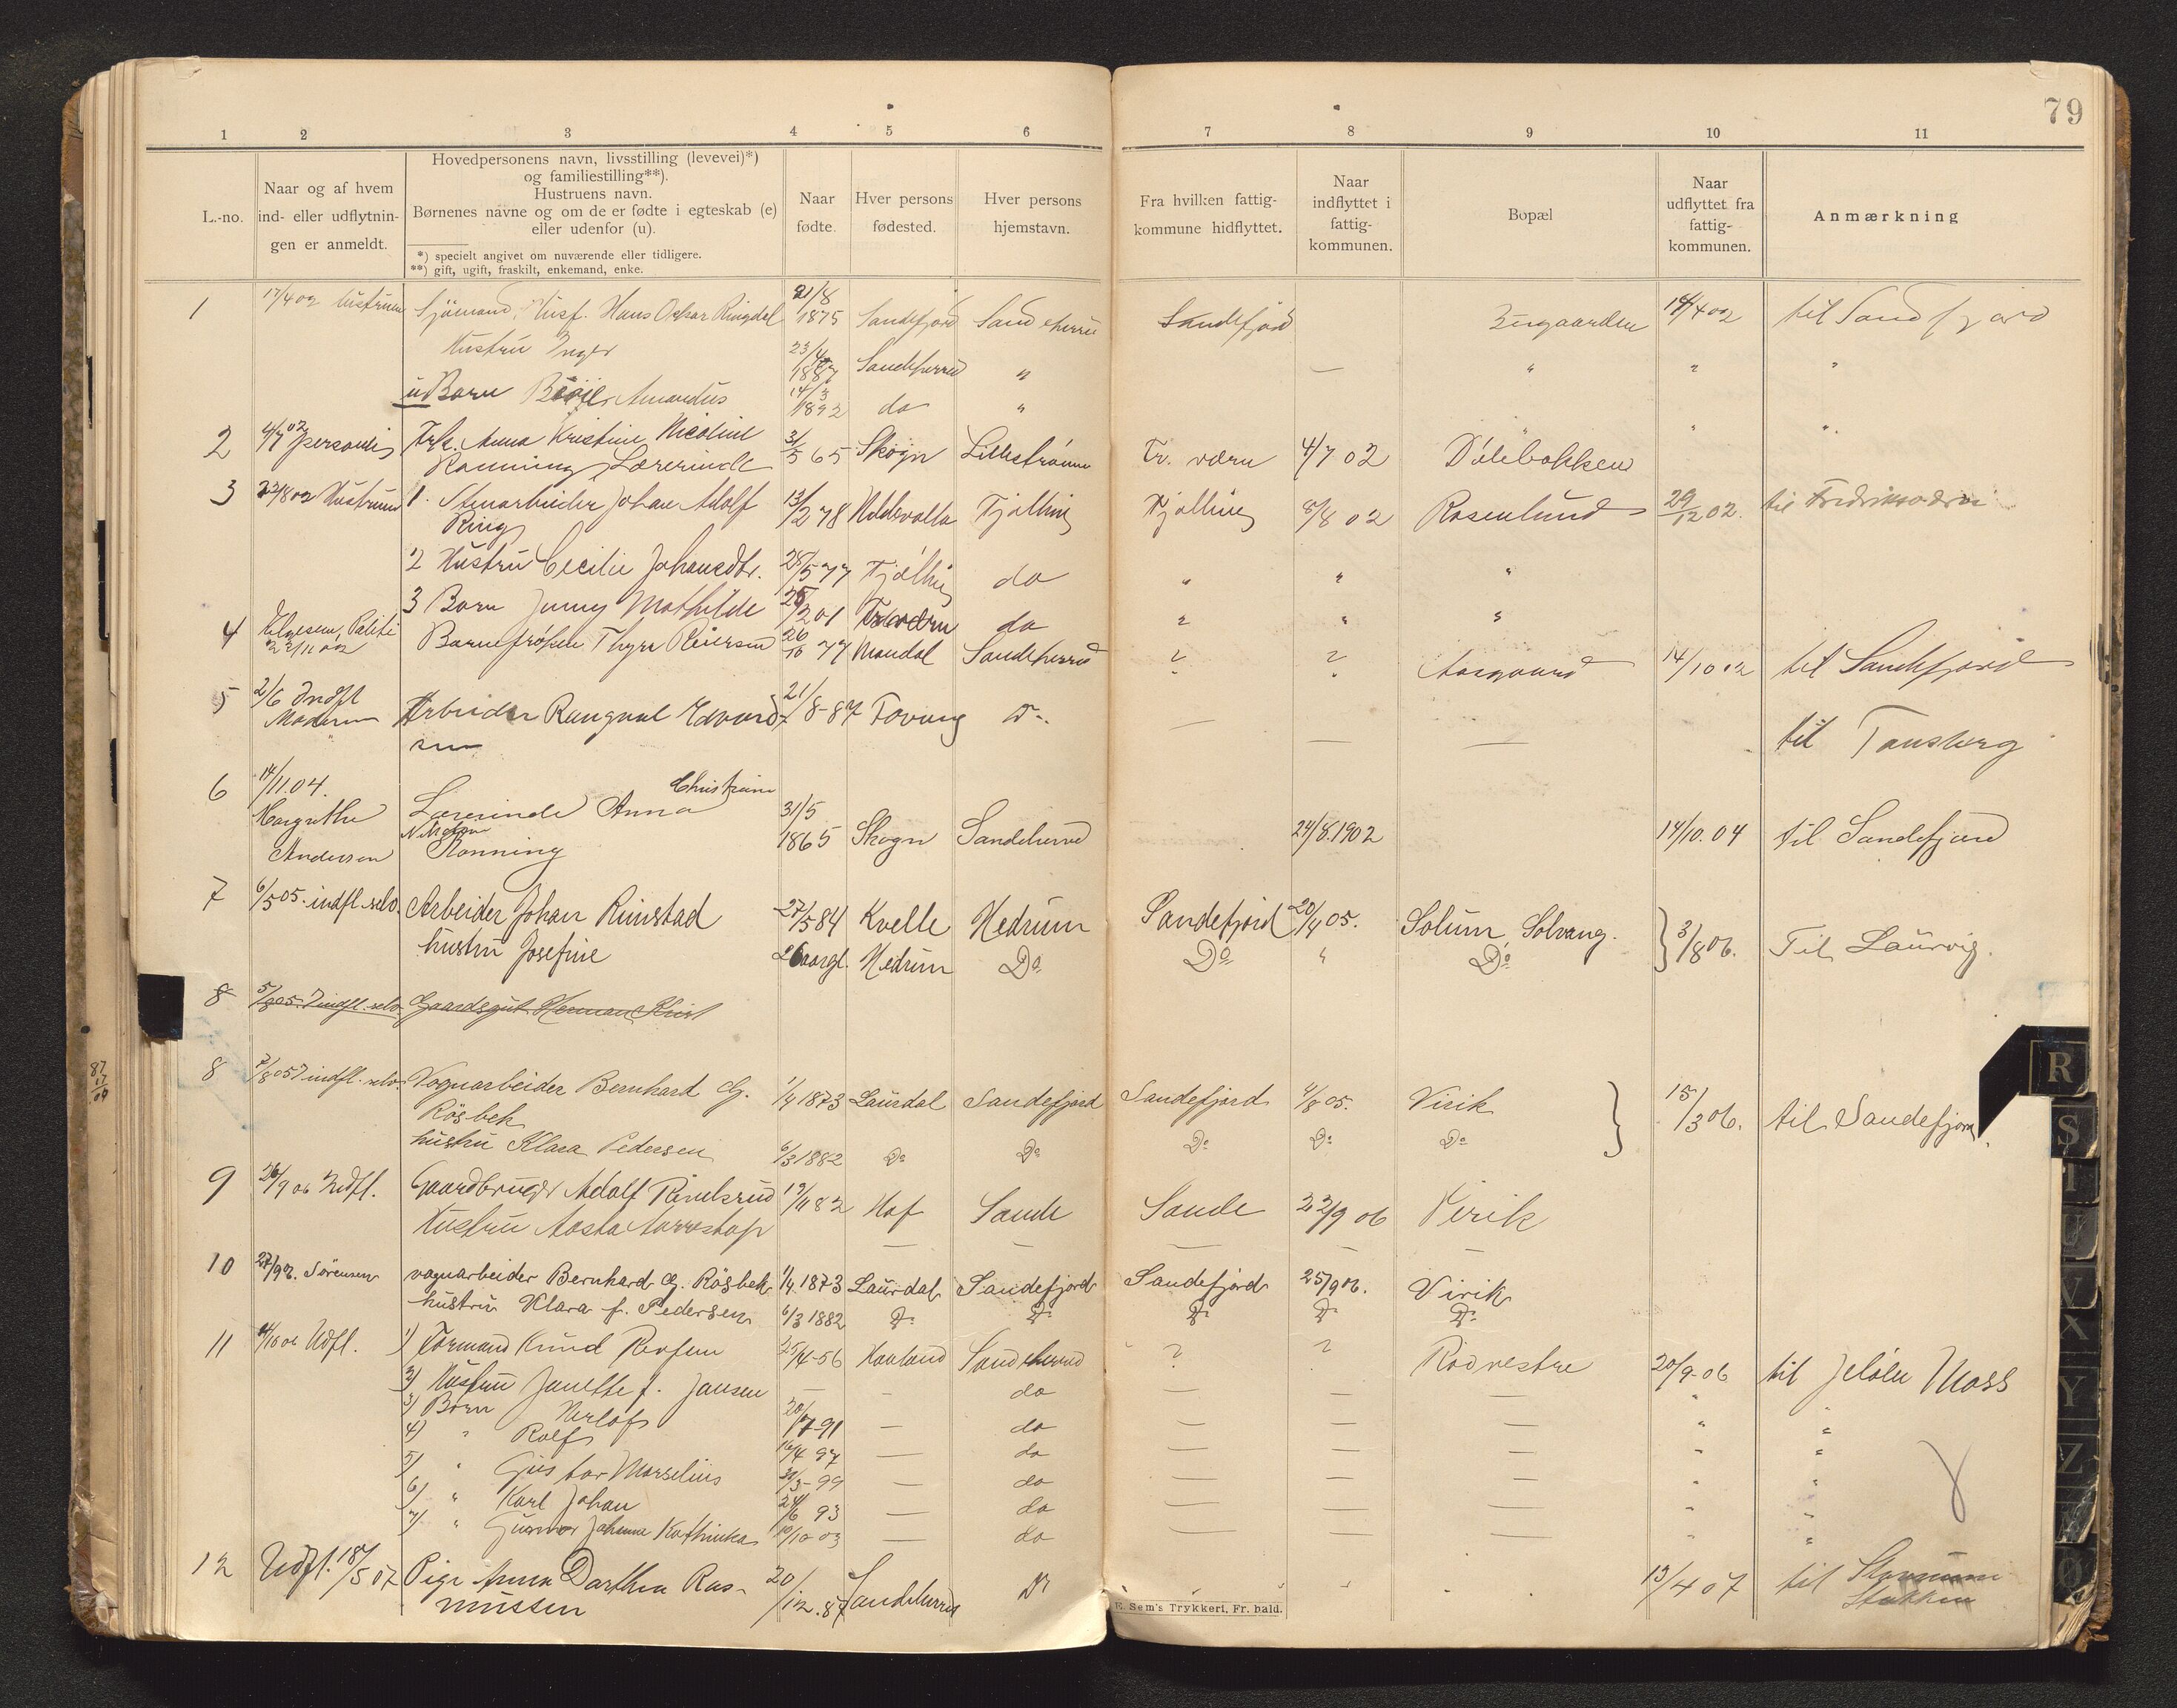 79
1 2 3 4 5 6 7 8 9 10 11
L.-no.
Naar og af hvem
ind- eller udflytnin-
gen er anmeldt.
Hovedpersonens navn, livsstilling (levevei)*)
og familiestilling**).
Hustruens navn.
Børnenes navne og om de er fødte i egteskab (e)
eller udenfor (u).
*) specielt angivet om nuværende eller tidligere.
**) gift, ugift, fraskilt, enkemand, enke.
Naar
fødte.
Hver persons
fødested.
Hver persons
hjemstavn.
Fra hvilken fattig-
kommune hidflyttet.
Naar
indflyttet i
fattig-
kommunen.
Bopæl
Naar
udflyttet fra
fattig-
kommunen.
Anmærkning
1 17/4 02 Hustruen Sjømand, Husf. Hans Oskar Ringdal 21/8 1875 Sandefjord Sandeherred Sandefjord 14/4 02 til Sandefjord
Hustru Inger 23/4 Sandeherred "
u Barn Amandus 14/3 1892 do "
2 4/7 02 personlig Frk. Anna Kristine Nicoline 31/5 65 Skogn Lillestrømm Fr. værn 4/7 02 Dølebakken
Rønning, Lærerinde
3 23/8 02 Hustruen 1. Stenarbeider Johan Adolf 13/2 78 Uddevalla Tjølling Tjølling 8/8 02 Rosenlund 29/12 02. til Fredriksværn
Ring
2 Hustru Cecilie Johansdtr. 28/5 77 Tjølling do " " "
3 Barn Jenny Mathilde 25/2 01 Fr.værn do " " "
4 Helgesen, Politi 22/11 02 Barnefrøken Thyra Reiersen 26/10 77 Mandal Sandeherred ? ? Aasgaard 14/10 02 til Sandefjord
5 2/6 Indfl Arbeider Rangval Edvard- 21/8-87 Fovang Do. — til Tønsberg
Moderen sen — —
6 14/11.04. Christine
Margrethe Lærerinde Anna 31/5
Andersen Rønning 1865 Skogn Sandeherred 24/8.1902 14/10.04 til Sandefjord
7 6/5 05. indfl. selv. Arbeider Johan Rimstad 27/5 84 Kvelle Hedrum Sandefjord 20/4 05. Solum, Solvang. } 3/8 06. Til Laurvig.
hustru Josefine 26 aargl. Hedrum Do Do " Do
8 5/8 05. indfl. selv. Gaardsgut Herman
8 7/8 05 indfl. selv. Vognarbeider Bernhard G. 1/4 1873 Laurdal Sandefjord Sandefjord 4/8 05. Virik } 15/3 06. til Sandefjord.
Røsbek
hustru Klara Pedersen 6/3 1882 Do Do Do Do Do
9 26/9 06 Indfl. Gaardbruger Adolf 19/4 82 Hof Sande Sande 22/9 06 Virik
Hustru Aasta Aarrestap — — — — —
10 27/9 06. Sørensen vognarbeider Bernhard G. Røsbek 1/4 1873 Laurdal Sandefjord Sandefjord 25/9 06. Virik
hustru Klara f. Pedersen 6/3 1882 Do Do Do Do Do
11 4/10 06 Udfl. 1) Formand Knud 25/4-56 Sandeherred ? ? Rødvestre 20/9-06 til Jeløen Moss
2) Hustru Janette f. Jansen — - do — — — "
3) Børn Herlof 20/7-91 — do — — — "
4) " Rolf 16/4 97 — do — — — "
5) " Gustav Marselius 30/3-99 — do — — — "
6) " Karl Johan 24/6 93 — do — — — "
7) " Gunvor Johanne Kathinka 10/10 03 — do — — — "
12 Udfl. 18/5 07 Pige Anna Darthea Ras- 20/12.87 Sandeherred Do 13/4 07 til
mussen Stokken
E. Sem's Trykkeri, Fr. hald.
R
S
T
U
V
X
Y
Z
Ø